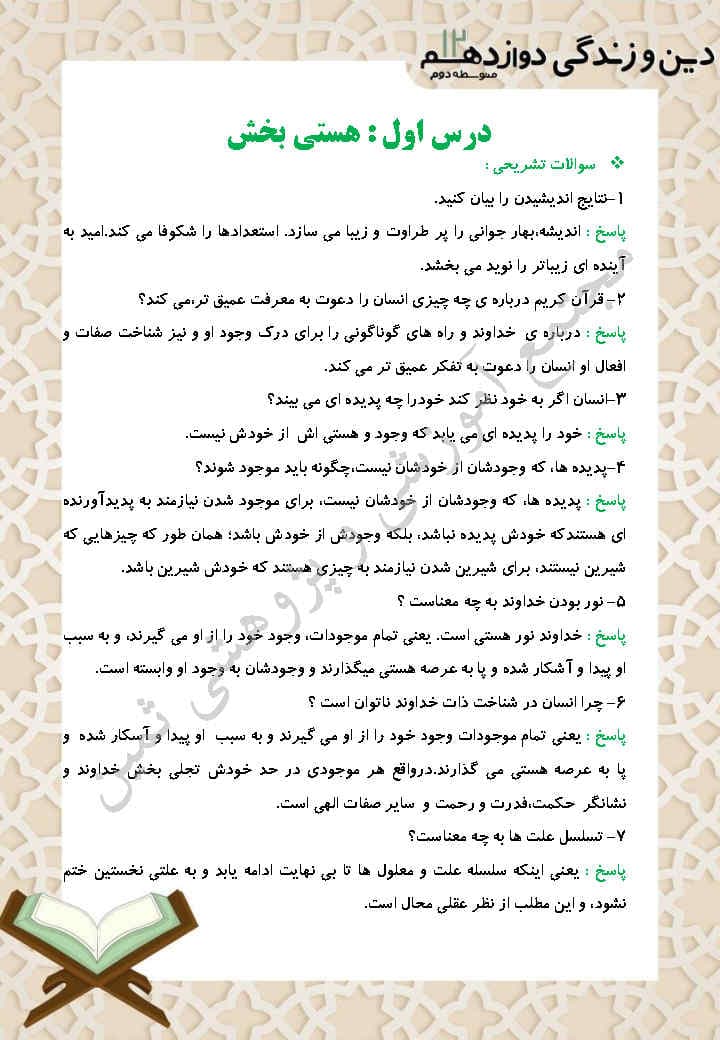 دین و زندگی دوازدهم
۱۲
متوسطه دوم
درس اول : هستی بخش
❖ سوالات تشریحی :
۱-نتایج اندیشیدن را بیان کنید.
پاسخ : اندیشه،بهار جوانی را پر طراوت و زیبا می سازد. استعدادها را شکوفا می کند.امید به
آینده ای زیباتر را نوید می بخشد.
۲- قرآن کریم درباره ی چه چیزی انسان را دعوت به معرفت عمیق تر،می کند؟
پاسخ : درباره ی خداوند و راه های گوناگونی را برای درک وجود او و نیز شناخت صفات و
افعال او انسان را دعوت به تفکر عمیق تر می کند.
۳-انسان اگر به خود نظر کند خودرا چه پدیده ای می بیند؟
پاسخ : خود را پدیده ای می یابد که وجود و هستی اش از خودش نیست.
۴-پدیده ها، که وجودشان از خودشان نیست،چگونه باید موجود شوند؟
پاسخ : پدیده ها، که وجودشان از خودشان نیست، برای موجود شدن نیازمند به پدیدآورنده
ای هستندکه خودش پدیده نباشد، بلکه وجودش از خودش باشد؛ همان طور که چیزهایی که
شیرین نیستند، برای شیرین شدن نیازمند به چیزی هستند که خودش شیرین باشد.
۵- نور بودن خداوند به چه معناست ؟
پاسخ : خداوند نور هستی است. یعنی تمام موجودات، وجود خود را از او می گیرند، و به سبب
او پیدا و آشکار شده و پا به عرصه هستی میگذارند و وجودشان به وجود او وابسته است.
۶- چرا انسان در شناخت ذات خداوند ناتوان است ؟
پاسخ : یعنی تمام موجودات وجود خود را از او می گیرند و به سبب او پیدا و آسکار شده و
پا به عرصه هستی می گذارند.درواقع هر موجودی در حد خودش تجلی بخش خداوند و
نشانگر حکمت،قدرت و رحمت و سایر صفات الهی است.
۷- تسلسل علت ها به چه معناست؟
پاسخ : یعنی اینکه سلسله علت و معلول ها تا بی نهایت ادامه یابد و به علتی نخستین ختم
نشود، و این مطلب از نظر عقلی محال است.
مجتمع آموزشی و پژوهشی ثمین